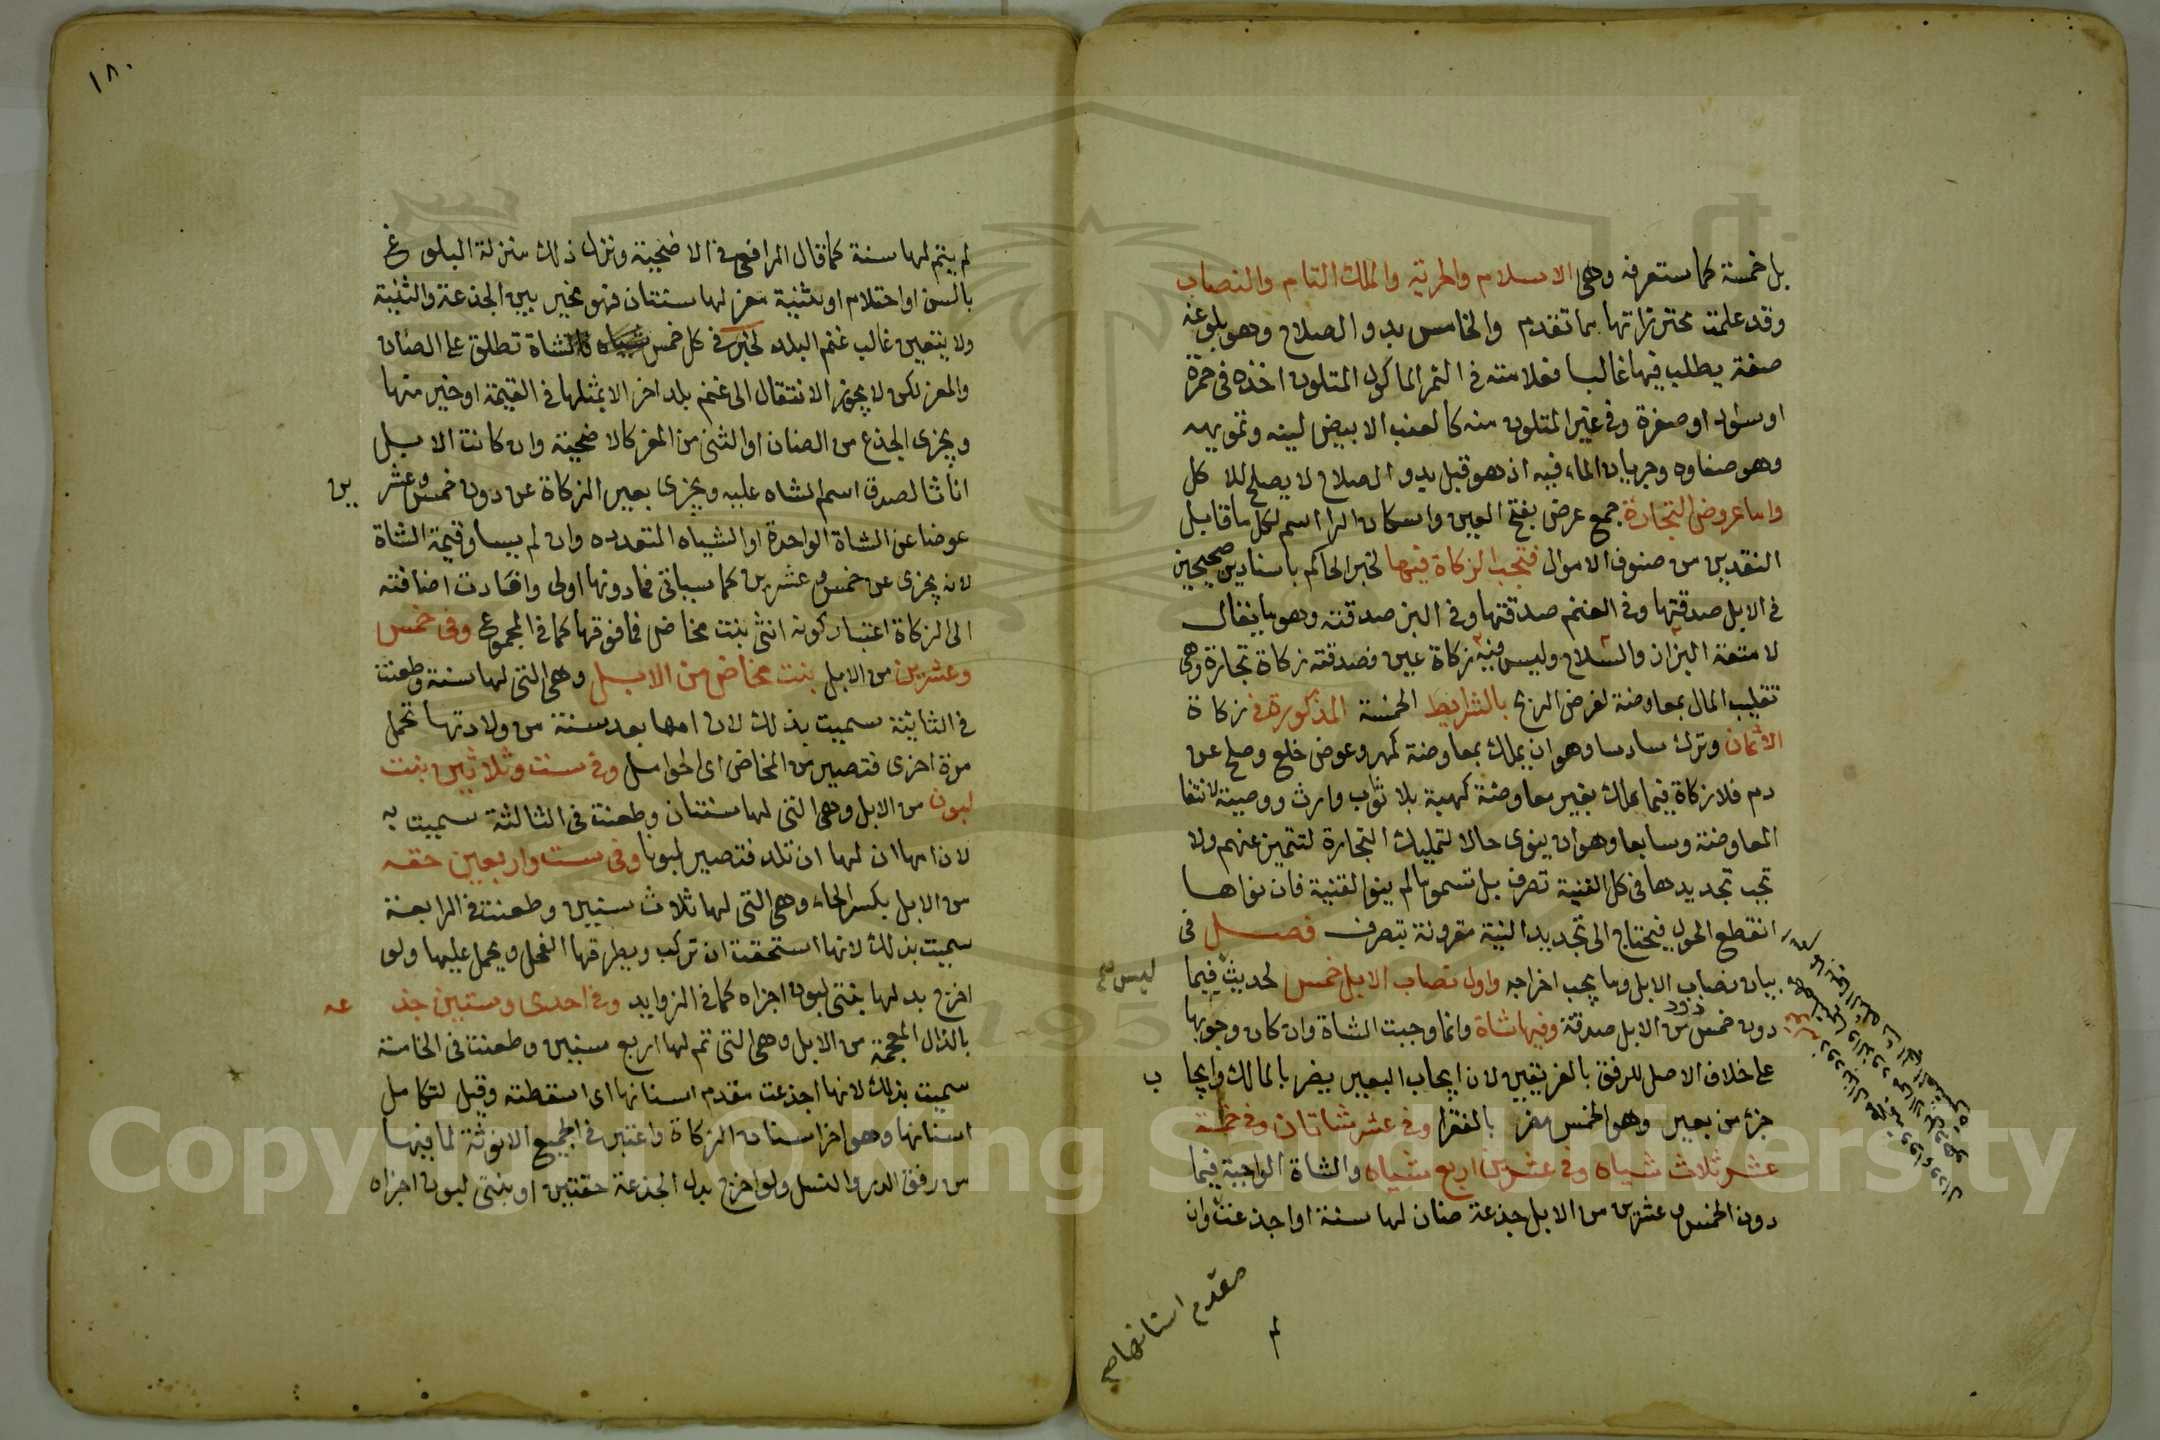 بل خمسة كما ستعرفه وهى الاسلام والحرية والملك التام والنصاب
وقد علمت محترزاتها بما تقدم والخامس بدو الصلاح وهو بلوغه
صفة يطلب فيها غالبا فعلامته فى الثمر الماكول المتلون اخذه فى حمرة
او سواد او صفرة وفى غير المتلون منه كالعنب الابيض لينه وتمويهه
وهو صفاوه وجريان الماء فيه اذ هو قبل بدو الصلاح لا يصلح للاكل
واما عروض التجارة جمع عرض بفتح العين واسكان الرا اسم لكل ما قابل
النقدين من صنوف الاموال فتجب الزكاة فيها لخبر الحاكم باسنادين صحيحين
فى الابل صدقتها وفى الغنم صدقتها وفى البز صدقته وهو ما يقال
لامتعة البزاز والسلاح وليس فيه زكاة عين فصدقته زكاة تجارة وهى
تقليب المال بمعاوضة لغرض الربح بالشرايط الخمسة المذكورة فى زكاة
الاثمان وترك سادسا وهو ان يملك بمعاوضة كمهر وعوض خلع وصلح عن
دم فلا زكاة فيما ملك بغير معاوضة كهبة بلا ثواب وارث ووصية لانتفا
المعاوضة وسابعا وهو ان ينوى حال التمليك التجارة لتتميز عنهم ولا
تجب تجديدها فى كل تصرف بل تستمر ما لم ينو القنية فان نواها
انقطع الحول فيحتاج الى تجديد النية مقرونة بتصرف فصل فى
بيان نصاب الابل وما يجب اخراجه واول نصاب الابل خمس لحديث فيما
ليس
دون خمس ذود من الابل صدقة وفيها شاة وانما وجبت الشاة وان كان وجوبها
على خلاف الاصل للرفق بالفريقين لان ايجاب البعير يضر بالمالك وايجا
ب
جزء من بعير وهو الخمس مضر بالفقرا وفى عشر شاتان وفى خمسة
عشر ثلاث شياه وفى عشرين اربع شياه والشاة الواجبة فيما
دون الخمس وعشرين من الابل جذعة ضان لها سنة او اجذعت وان
مقدم اسنانها
١٨٠
لم يتم لها سنة كما قال الرافعى فى الاضحية ونزل ذلك منزلة البلوغ
بالسن او احتلام او ثنية معز لها سنتان فهو مخير بين الجذعة والثنية
ولا يتعين غالب غنم البلد لخبر فى كل خمس شاة والشاة تطلق على الضان
والمعز لكن لا يجوز الانتقال الى غنم بلد اخر الا بمثلها فى القيمة او خير منها
ويجزى الجذع من الضان او الثنى من المعز كالاضحية وان كانت الابل
اناثا لصدق اسم الشاه عليه ويجزى بعير الزكاة عن دون خمس وعشر
ين
عوضا عن الشاة الواحدة او الشياه المتعدده وان لم يساو قيمة الشاة
لانه يجزى عن خمس وعشرين كما سياتى فما دونها اولى وافادت اضافته
الى الزكاة اعتبار كونه انثى بنت مخاض فما فوقها كما فى المجموع وفى خمس
وعشرين من الابل بنت مخاض من الابل وهى التى لها سنة وطعنت
فى الثانية سميت بذلك لان امها بعد سنة من ولادتها تحمل
مرة اخرى فتصير من المخاض اى الحوامل وفى ست وثلاثين بنت
لبون من الابل وهى التى لها سنتان وطعنت فى الثالثة سميت به
لان امها ان لها ان تلد فتصير لبونا وفى ست واربعين حقه
من الابل بكسر الحاء وهى التى لها ثلاث سنين وطعنت فى الرابعة
سميت بذلك لانها استحقت ان تركب ويطرقها الفحل ويحمل عليها ولو
اخرج بدلها بنتى لبون اجزاه كما فى الزوايد وفى احدى وستين جذ
عه
بالذال المعجمة من الابل وهى التى تم لها اربع سنين وطعنت فى الخامسة
سميت بذلك لانها اجذعت مقدم اسنانها اى اسقطته وقيل لتكامل
اسنانها وهو اخر اسنان الزكاة واعتبر فى الجميع الانوثة لما فيها
من رفق الدر والنسل ولو اخرج بدل الجذعة حقتين او بنتى لبون اجزاه
Copyright © King Saud University
195